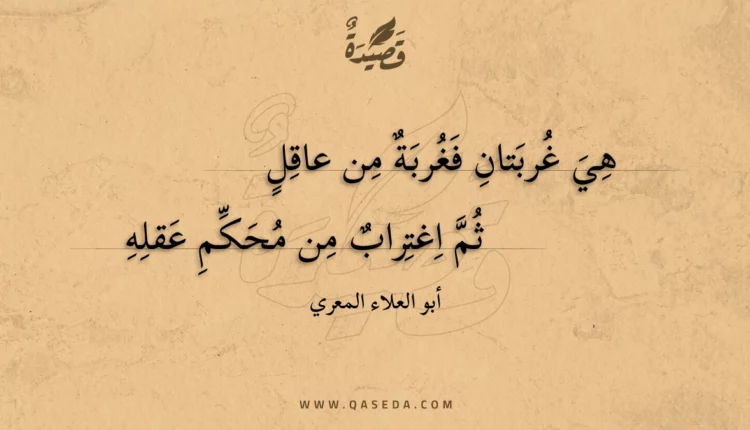 قَصِيدَةٌ
هِيَ غُربَتانِ فَغُربَةٌ مِن عاقِلٍ
ثُمَّ اِغتِرابٌ مِن مُحَكِّمِ عَقلِهِ
أبو العلاء المعري
WWW.QASEDA.COM